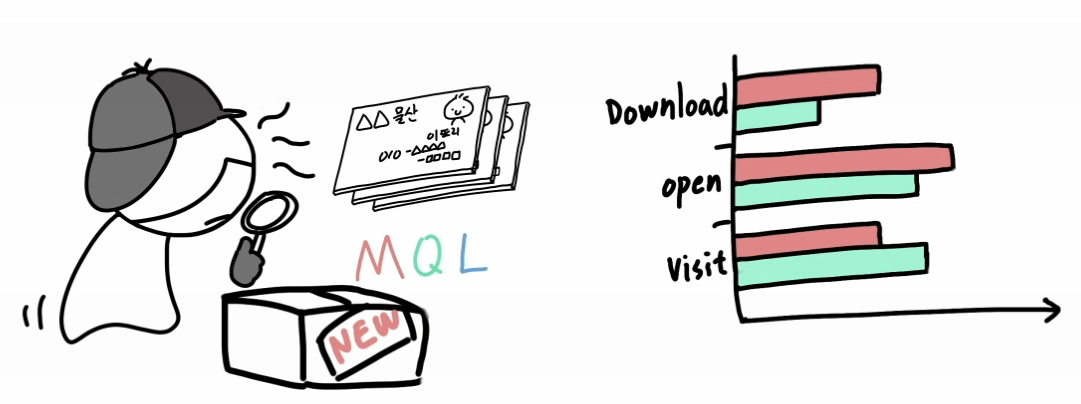 △△ 물산
이또리
010-△△△△
-□□□□
MQL
NEW
Download
open
Visit